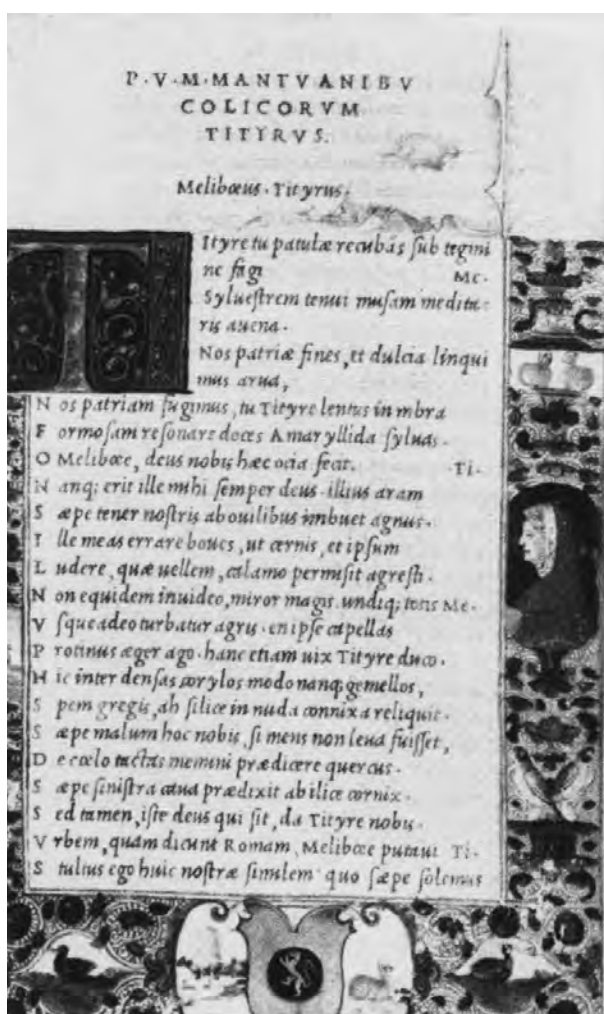 P. V. M. MANTVANI BV
COLICORVM
TITYRVS.
Melibœus. Tityrus.
TItyre tu patulæ recubãs sub tegmi
ne fagi Me.
Syluestrem tenui musam medita
ris auena.
Nos patriæ fines, et dulcia linqui
mus arua,
N os patriam fugimus, tu Tityre lentus in mbra
F ormosam resonare doces Amaryllida syluas.
O Melibœe, deus nobis hæc ocia fecit. Ti.
N anq; erit ille mihi semper deus. illius aram
S æpe tener nostris ab ouilibus imbuet agnus.
I lle meas errare boues, ut cernis, et ipsum
L udere, quæ uellem, calamo permisit agresti.
N on equidem inuideo, miror magis. undiq; totis Me.
V sque adeo turbatur agris. en ipse capellas
P rotinus æger ago. hanc etiam uix Tityre duco.
H ic inter densas corylos modo nanq; gemellos,
S pem gregis, ah silice in nuda connixa reliquit.
S æpe malum hoc nobis, si mens non leua fuisset,
D e cœlo tactas memini prædicere quercus.
S æpe sinistra caua prædixit ab ilice cornix.
S ed tamen, iste deus qui sit, da Tityre nobis.
V rbem, quam dicunt Romam, Melibœe putaui Ti.
S tultus ego huic nostræ similem. quo sæpe solemus